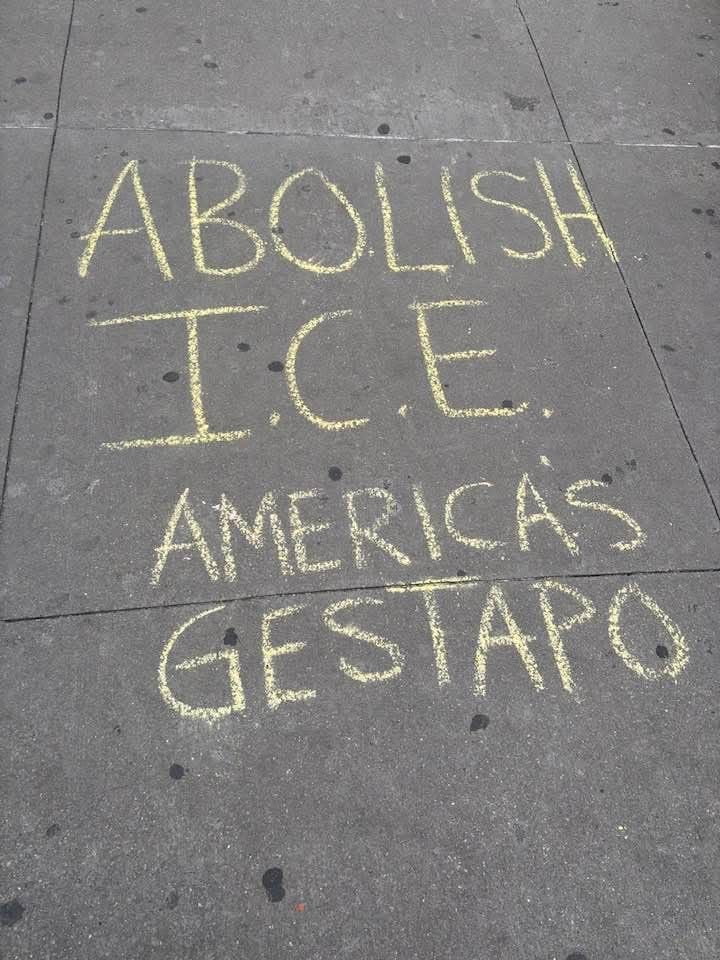 ABOLISH
I.C.E.
AMERICA'S
GESTAPO